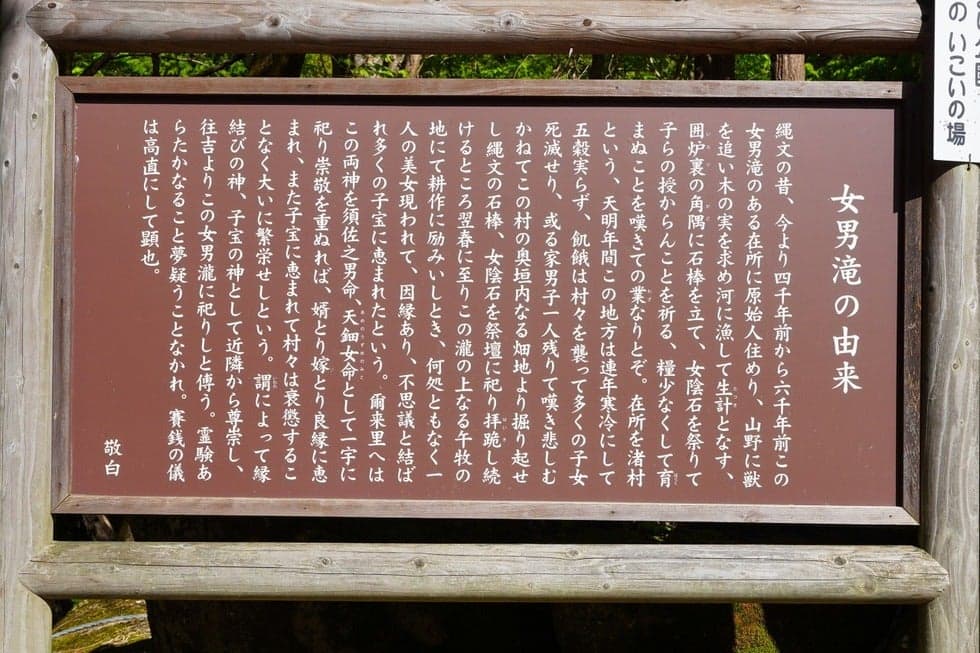 女男滝の由来
縄文の昔、今より四千年前から六千年前この
女男滝のある在所に原始人住めり、山野に獣
を追い木の実を求め河に漁して生計となす、
囲炉裏の角隅に石棒を立て、女陰石を祭りて
子らの授からんことを祈る、糧少なくして育
まぬことを嘆きての業なりとぞ。在所を渚村
という、天明年間この地方は連年寒冷にして
五穀実らず、飢餓は村々を襲って多くの子女
死滅せり、或る家男子一人残りて嘆き悲しむ
かねてこの村の奥垣内なる畑地より掘り起せ
し縄文の石棒、女陰石を祭壇に祀り拝跪し続
けるところ翌春に至りこの瀧の上なる午牧の
地にて耕作に励みいしとき、何処ともなく一
人の美女現われて、因縁あり、不思議と結ば
れ多くの子宝に恵まれたという。爾来里へは
この両神を須佐之男命、天鈿女命として一宇に
祀り崇敬を重ぬれば、婿とり嫁とり良縁に恵
まれ、また子宝に恵まれて村々は衰憊するこ
となく大いに繁栄せしという。謂によって縁
結びの神、子宝の神として近隣から尊崇し、
往古よりこの女男瀧に祀りしと傳う。霊験あ
らたかなること夢疑うことなかれ。賽銭の儀
は高直にして顕也。
敬白
の いこいの場